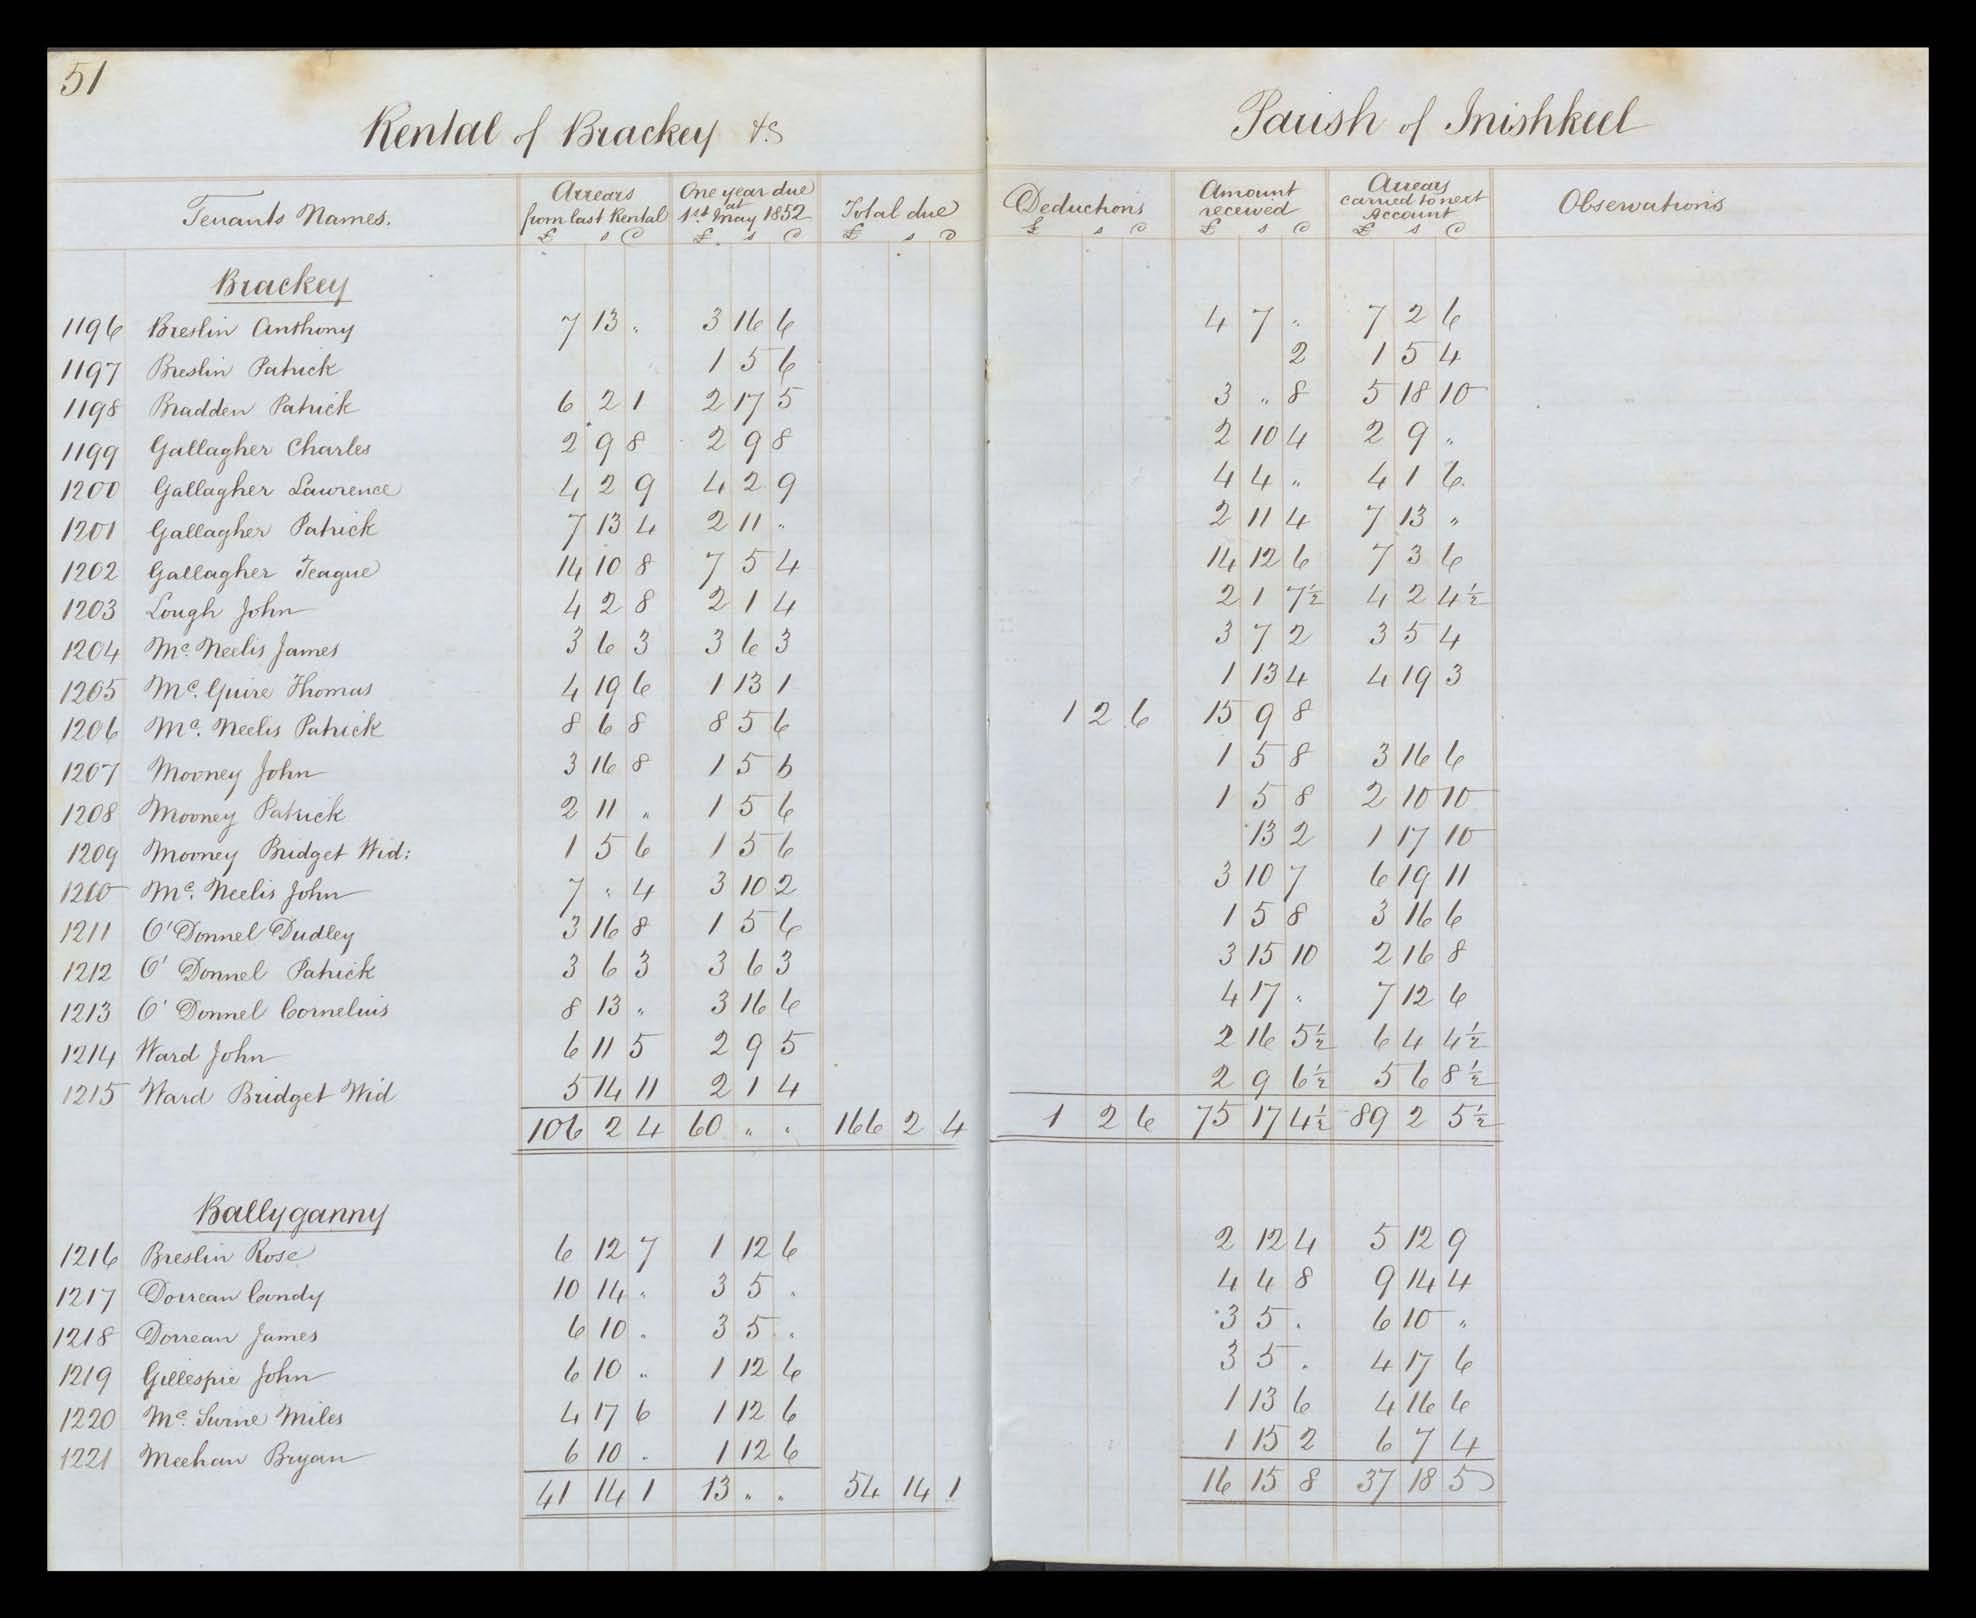 51
Rental of Brackey &c
Parish of Inishkeel
Tenants Names. Arrears from last Rental £ s d One year due at 1st May 1852 £ s d Total due £ s d Deductions £ s d Amount received £ s d Arrears carried to next Account £ s d Observations
Brackey
1196 Breslin Anthony 7 13 „ 3 16 6 4 7 „ 7 2 6
1197 Breslin Patrick 1 5 6 2 1 5 4
1198 Bradden Patrick 6 2 1 2 17 5 3 „ 8 5 18 10
1199 Gallagher Charles 2 9 8 2 9 8 2 10 4 2 9 „
1200 Gallagher Lawrence 4 2 9 4 2 9 4 4 „ 4 1 6
1201 Gallagher Patrick 7 13 4 2 11 „ 2 11 4 7 13 „
1202 Gallagher Teague 14 10 8 7 5 4 14 12 6 7 3 6
1203 Lough John 4 2 8 2 1 4 2 1 7½ 4 2 4½
1204 Mc. Neelis James 3 6 3 3 6 3 3 7 2 3 5 4
1205 Mc. Guire Thomas 4 19 6 1 13 1 1 13 4 4 19 3
1206 Mc. Neelis Patrick 8 6 8 8 5 6 1 2 6 15 9 8
1207 Mooney John 3 16 8 1 5 6 1 5 8 3 16 6
1208 Mooney Patrick 2 11 „ 1 5 6 1 5 8 2 10 10
1209 Mooney Bridget Wid: 1 5 6 1 5 6 13 2 1 17 10
1210 Mc. Neelis John 7 „ 4 3 10 2 3 10 7 6 19 11
1211 O'Donnel Dudley 3 16 8 1 5 6 1 5 8 3 16 6
1212 O' Donnel Patrick 3 6 3 3 6 3 3 15 10 2 16 8
1213 O' Donnel Cornelius 8 13 „ 3 16 6 4 17 „ 7 12 6
1214 Ward John 6 11 5 2 9 5 2 16 5½ 6 4 4½
1215 Ward Bridget Wid 5 14 11 2 1 4 2 9 6½ 5 6 8½
106 2 4 60 „ „ 166 2 4 1 2 6 75 17 4½ 89 2 5½
Ballyganny
1216 Breslin Rose 6 12 7 1 12 6 2 12 4 5 12 9
1217 Dorrean Condy 10 14 „ 3 5 „ 4 4 8 9 14 4
1218 Dorrean James 6 10 „ 3 5 „ 3 5 „ 6 10 „
1219 Gillespie John 6 10 „ 1 12 6 3 5 „ 4 17 6
1220 Mc. Swine Miles 4 17 6 1 12 6 1 13 6 4 16 6
1221 Meehan Bryan 6 10 „ 1 12 6 1 15 2 6 7 4
41 14 1 13 „ „ 54 14 1 16 15 8 37 18 5